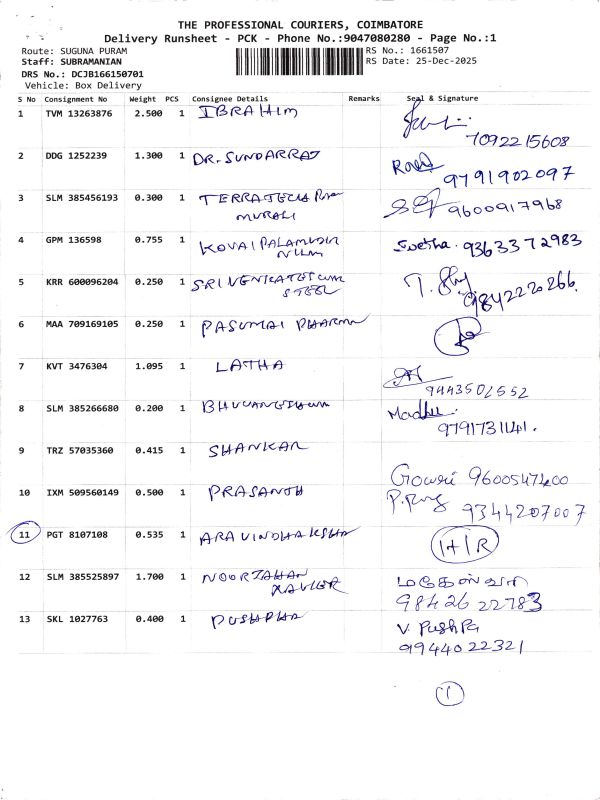 THE PROFESSIONAL COURIERS, COIMBATORE
Delivery Runsheet - PCK - Phone No.:9047080280 - Page No.:1
Route: SUGUNA PURAM RS No.: 1661507
Staff: SUBRAMANIAN RS Date: 25-Dec-2025
DRS No.: DCJB166150701
Vehicle: Box Delivery
S No Consignment No Weight PCS Consignee Details Remarks Seal & Signature
1 TVM 13263876 2.500 1 IBRAHIM
7092215608
2 DDG 1252239 1.300 1 DR. SUNDARRAJ
9791902097
3 SLM 385456193 0.300 1 TERRATECH
MURALI 9600917968
4 GPM 136598 0.755 1 KOVAI PALAMUDIR Swetha. 9363372983
NILM
5 KRR 600096204 0.250 1 SRI VENKATESWR
STEEL 9842220266.
6 MAA 709169105 0.250 1 PASUMAI PHARMA
7 KVT 3476304 1.095 1 LATHA
9443502552
8 SLM 385266680 0.200 1 BHUVANESHWR Madhu.
9791731141.
9 TRZ 57035360 0.415 1 SHANKAR
Gowri 9600547400
10 IXM 509560149 0.500 1 PRASANTH
9344207007
11 PGT 8107108 0.535 1 ARAVINDHAKSHAN H/R
12 SLM 385525897 1.700 1 NOORJAHAN
XAVIER 9842622783
13 SKL 1027763 0.400 1 PUSHPHA V. PushPa
9944022321
1